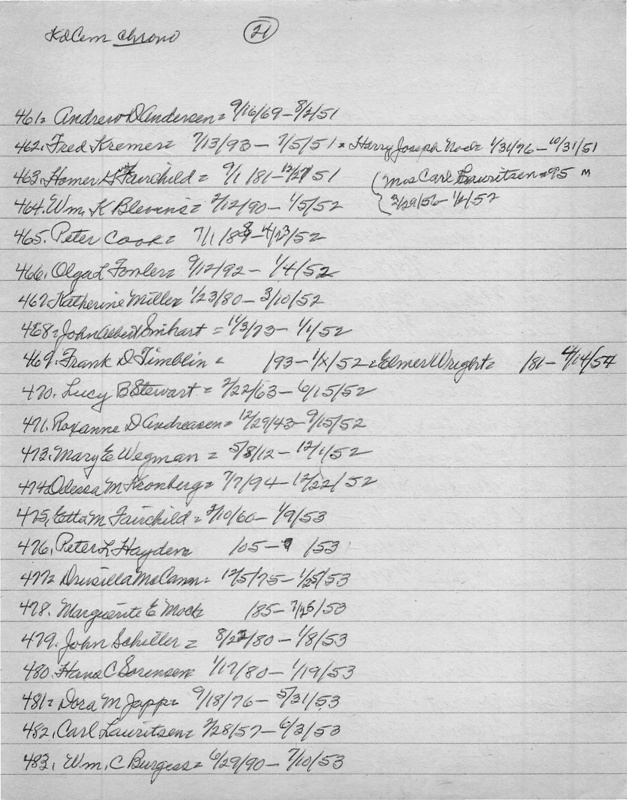 KdCem chrono 21
461= Andrew D Andersen = 9/16/69 - 8/2/51
462. Fred Kremer = 7/13/93 - 7/5/51 * Harry Joseph Mock = 1/31/76 - 10/31/51
463. Homer H Fairchild = 9/1/81 - 12/27/51 (Mrs Carl Lauritsen = 95 m
464. Wm. K Blevins = 2/12/90 - 1/5/52 2/29/56 - 1/2/52
465. Peter Cook = 7/1/88 - 4/23/52
466. Olga L Fowler = 9/12/92 - 1/4/52
467. Katherine Miller = 1/23/80 - 3/10/52
468= John Albert Smhart = 11/3/73 - 1/1/52
469. Frank D Timblin = /93 - 1/ /52 = Elmer Wright = /81 - 4/14/54
470. Lucy B Stewart = 2/22/63 - 6/15/52
471. Roxanne D Andreasen = 12/29/43 - 9/15/52
473. Mary E Wegman = 5/8/12 - 12/1/52
474 Odessa M Kronberg = 7/7/94 - 12/22/52
475. Etta M Fairchild = 2/10/60 - 1/9/53
476. Peter L Hayden = /05 - /53
477= Drusilla McCann = 12/5/75 - 1/25/53
478. Marguerite E Mock /85 - 7/25/53
479. John Schiller = 8/22/80 - 1/8/53
480. Hans C Sorensen = 1/17/80 - 1/19/53
481= Dora M Japp = 9/18/76 - 5/31/53
482. Carl Lauritsen = 2/28/57 - 6/3/53
483. Wm. C Burgess = 6/29/90 - 7/10/53